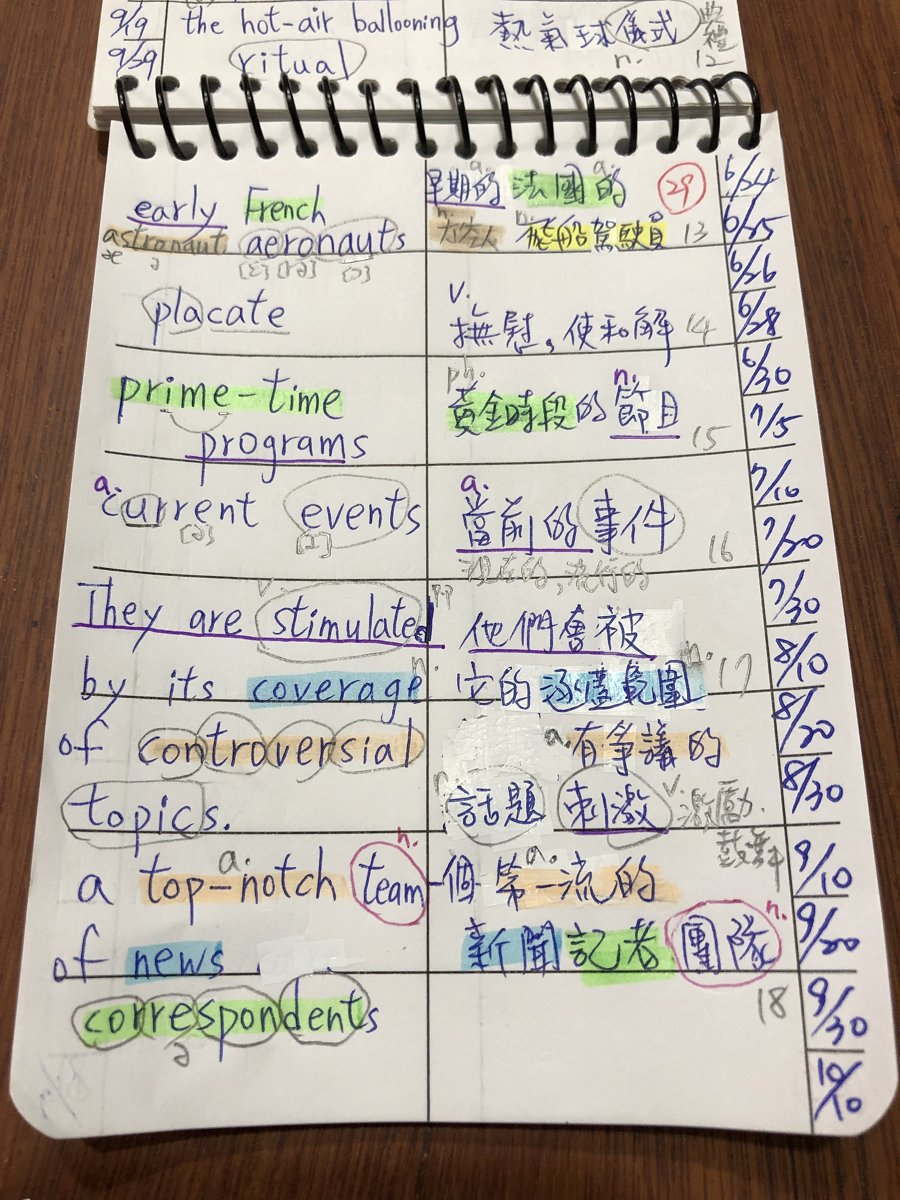 9/19 the hot-air ballooning 熱氣球儀式 典禮
9/29 ritual n. 12
early French 早期的 a. 法國的 a. 29 6/24
astronaut aeronauts n. 太空人 n. 飛船駕駛員 13 6/25
æ ə [ɛ] [rə] [ɔ]
6/26
placate v. 撫慰，使和解 14 6/28
ph. n. 6/30
prime-time 黃金時段的節目 15 7/5
programs
a. a. 7/10
current events 當前的事件 16 7/20
[ɪ] 現在的，流行的
v. pp 7/30
They are stimulated 他們會被
by its coverage n. 它的涵蓋範圍 n. 17 8/10
of controversial a. 有爭議的 8/20
topics. 話題 刺激 v. 激勵. 8/30
鼓舞
a top-notch team 一個第一流的 9/10
a. n. a.
of news 新聞記者團隊 n. 9/20
correspondents 18 9/30
ə
10/10